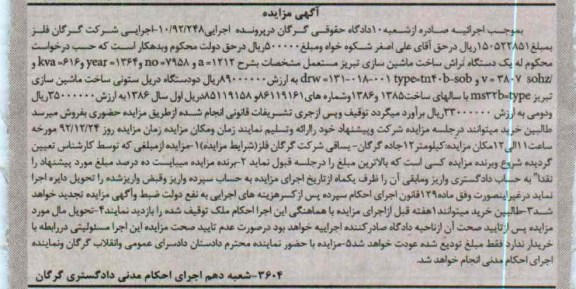 آگهی مزایده
بموجب اجرائیه صادره ازشعبه۱۰دادگاه حقوقی گرگان درپرونده اجرایی۱۰/۹۲/۲۴۸-اجرایی شرکت گرگان فلز
بمبلغ۱۵۰۵۲۲۸۵۱ریال درحق آقای علی اصغر شکوه خواه ومبلغ۵۰۰۰۰۰ریال درحق دولت محکوم وبدهکار است که حسب درخواست
محکوم له یک دستگاه تراش ساخت ماشین سازی تبریز مستعمل مشخصات بشرح a=۱۲۱۲ و no=۷۹۵۸ و year=۱۳۶۴ و kva=۶۱۶ و
v=۳۸۰۷ sohz/ و type=tn۴۰b-sob و drw=۱۳۱-۰۱۸-۰۰۱ به ارزش۸۹۰۰۰۰۰۰ریال دودستگاه دریل ستونی ساخت ماشین سازی
تبریز ms۳۲b=type با سالهای ساخت۱۳۸۵ و۱۳۸۶وشماره های۸۶۱۱۹۱۶۱و ۸۵۱۱۹۱۵۸دریل اول سال ۱۳۸۶به ارزش۳۵۰۰۰۰۰۰ریال
ودومی به ارزش ۳۳۰۰۰۰۰۰ریال برآورد میگردد توقیف وپس ازجری تشریفات قانونی انجام شده ازطریق مزایده حضوری بفروش میرسد
طالبین خرید میتوانند درجلسه مزایده شرکت وپیشنهاد خود راارائه وتسلیم نمایند زمان ومکان مزایده زمان مزایده روز ۹۲/۱۲/۲۴ مورخه
ساعت۱۱الی۱۲مکان مزایده:کیلومتر۱۲جاده گرگان- یساقی شرکت گرگان فلز(شرایط مزایده)۱-مزایده ازمبلغی که توسط کارشناس تعیین
گردیده شروع وبرنده مزایده کسی است که بالاترین مبلغ را درجلسه قبول نماید ۲-برنده مزایده میبایست ده درصد مبلغ مورد پیشنهاد را
نقدا" به حساب دادگستری واریز ومابقی آن را ظرف یکماه ازتاریخ اجرای مزایده به حساب سپرده واریز وقبض واریزشده را تحویل دایره اجرا
نماید درغیراینصورت وفق ماده۱۲۹قانون اجرای احکام سپرده پس از کسرهزینه های اجرایی به نفع دولت ضبط وآگهی مزایده تجدید خواهد
شد۳-طالبین خرید میتوانند۱هفته قبل ازاجرای مزایده با هماهنگی این اجرا احکام ملک توقیف شده را بازدید نمایند۴-تحویل مال مورد
مزایده پس ازتایید صحت آن ازناحیه دادگاه صادرکننده اجراییه خواهد بود درصورت عدم تایید صحت مزایده این اجرا مسئولیتی دررابطه با
خریدار ندارد فقط مبلغ تودیع شده عودت خواهد شد۵-مزایده با حضور نماینده محترم دادستان دادسرای عمومی وانقلاب گرگان ونماینده
اجرای احکام مدنی انجام خواهد شد.
۳۶۰۴-شعبه دهم اجرای احکام مدنی دادگستری گرگان